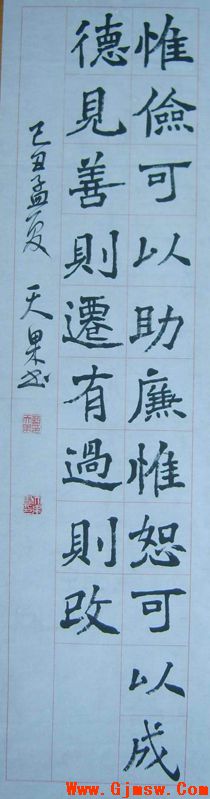 惟儉可以助廉惟恕可以成
德見善則遷有過則改
己丑孟夏 天果书
Www.Gjmsw.Com